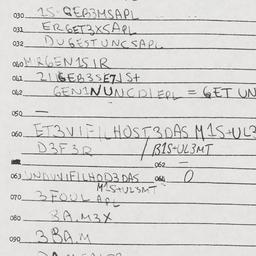 030 1S-GEB3MSAPL
031 ERGET3XSAPL
032 DUGESTUNCSAPL
040 MRGEN1S1R
041 21GEB3SE7JS+
042 GEN1NUNCD1EPL = GET UN
050 —
060 ET3VIFILHOST3DAS M1S+UL3
D3F3R / B1S+UL3MT
062 —
063 UNDUVIFILHOD3DAS 064 0
M1S+UL3MT
070 3FOUL APL
080 8A.M3X
090 3BA.M